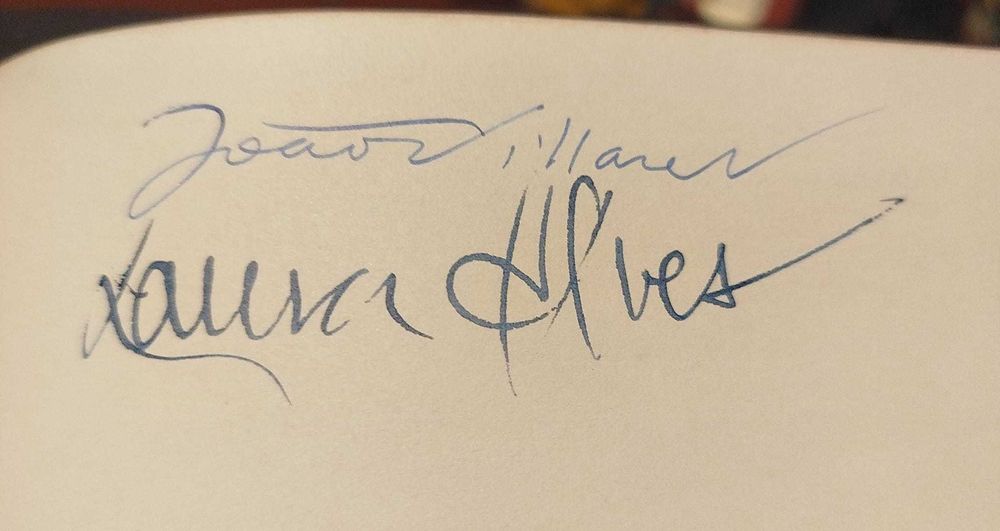 João Villaret
Laura Alves